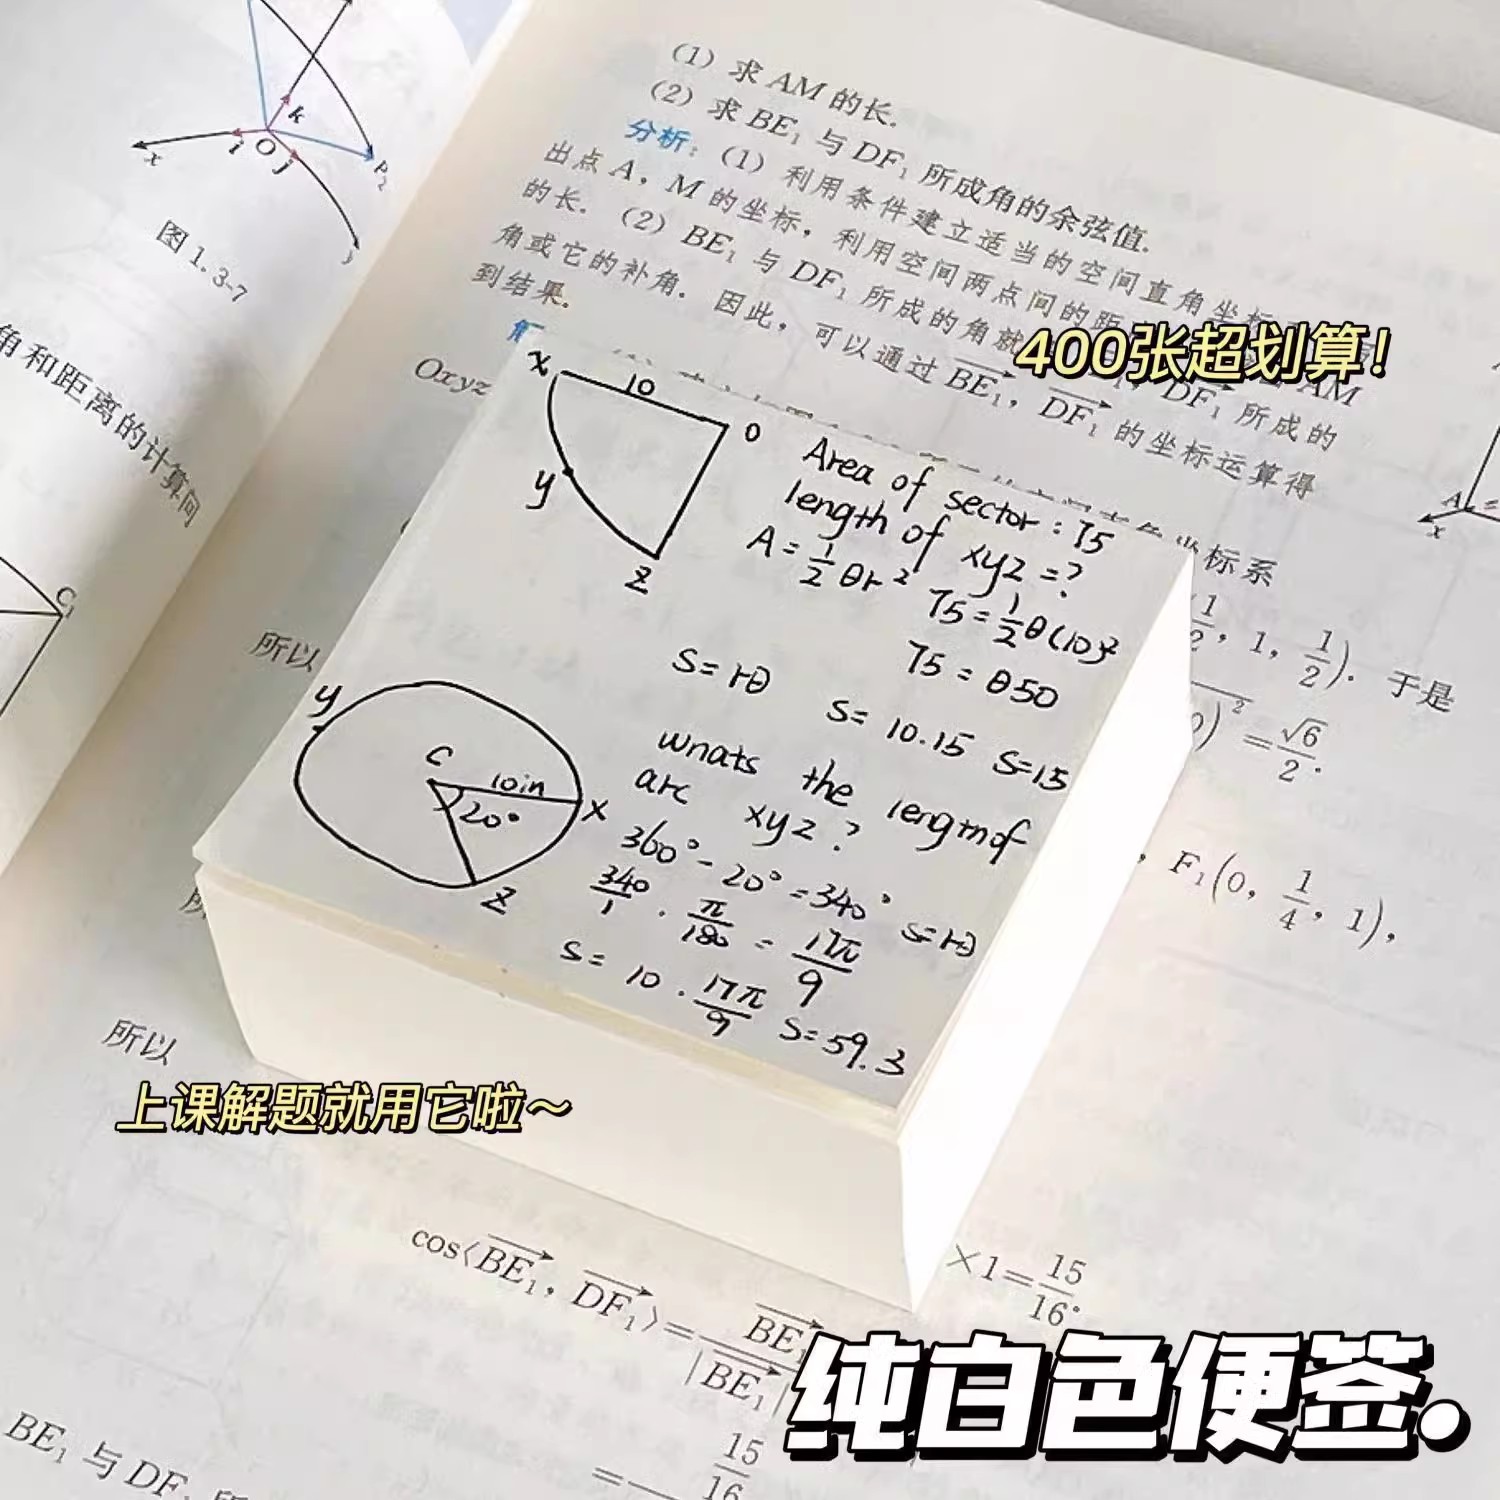 k
i
O
j
x
P₂
图 1.3-7
角和距离的计算问
C₁
(1) 求 AM 的长.
(2) 求 BE₁ 与 DF₁ 所成角的余弦值.
分析：(1) 利用条件建立适当的空间直角坐标
出点 A，M 的坐标，利用空间两点间的距
的长. (2) BE₁ 与 DF₁ 所成的角就 AM
角或它的补角. 因此，可以通过 BE₁，DF₁ 的坐标运算得
DF₁ 所成的
到结果.
400张超划算!
Oxyz
坐标系
1/2, 1, 1/2). 于是
)² = √6/2.
, F₁(0, 1/4, 1),
A
x
x
10
O
y
z
Area of sector : 75
length of xyz = ?
A = 1/2 θr²
75 = 1/2 θ(10)²
75 = θ50
s = rθ
s = 10.15 s=15
y
C
10in
20°
x
z
wnats the lengthof
arc xyz ?
360° - 20° = 340° s=rθ
340/1 · π/180 = 17π/9
s = 10 · 17π/9 s=59.3
所以
所以
上课解题就用它啦~
×1=15/16.
cos⟨BE₁, DF₁⟩= BE₁ / |BE₁|
纯白色便签.
=— 15/16
BE₁ 与 DF₁